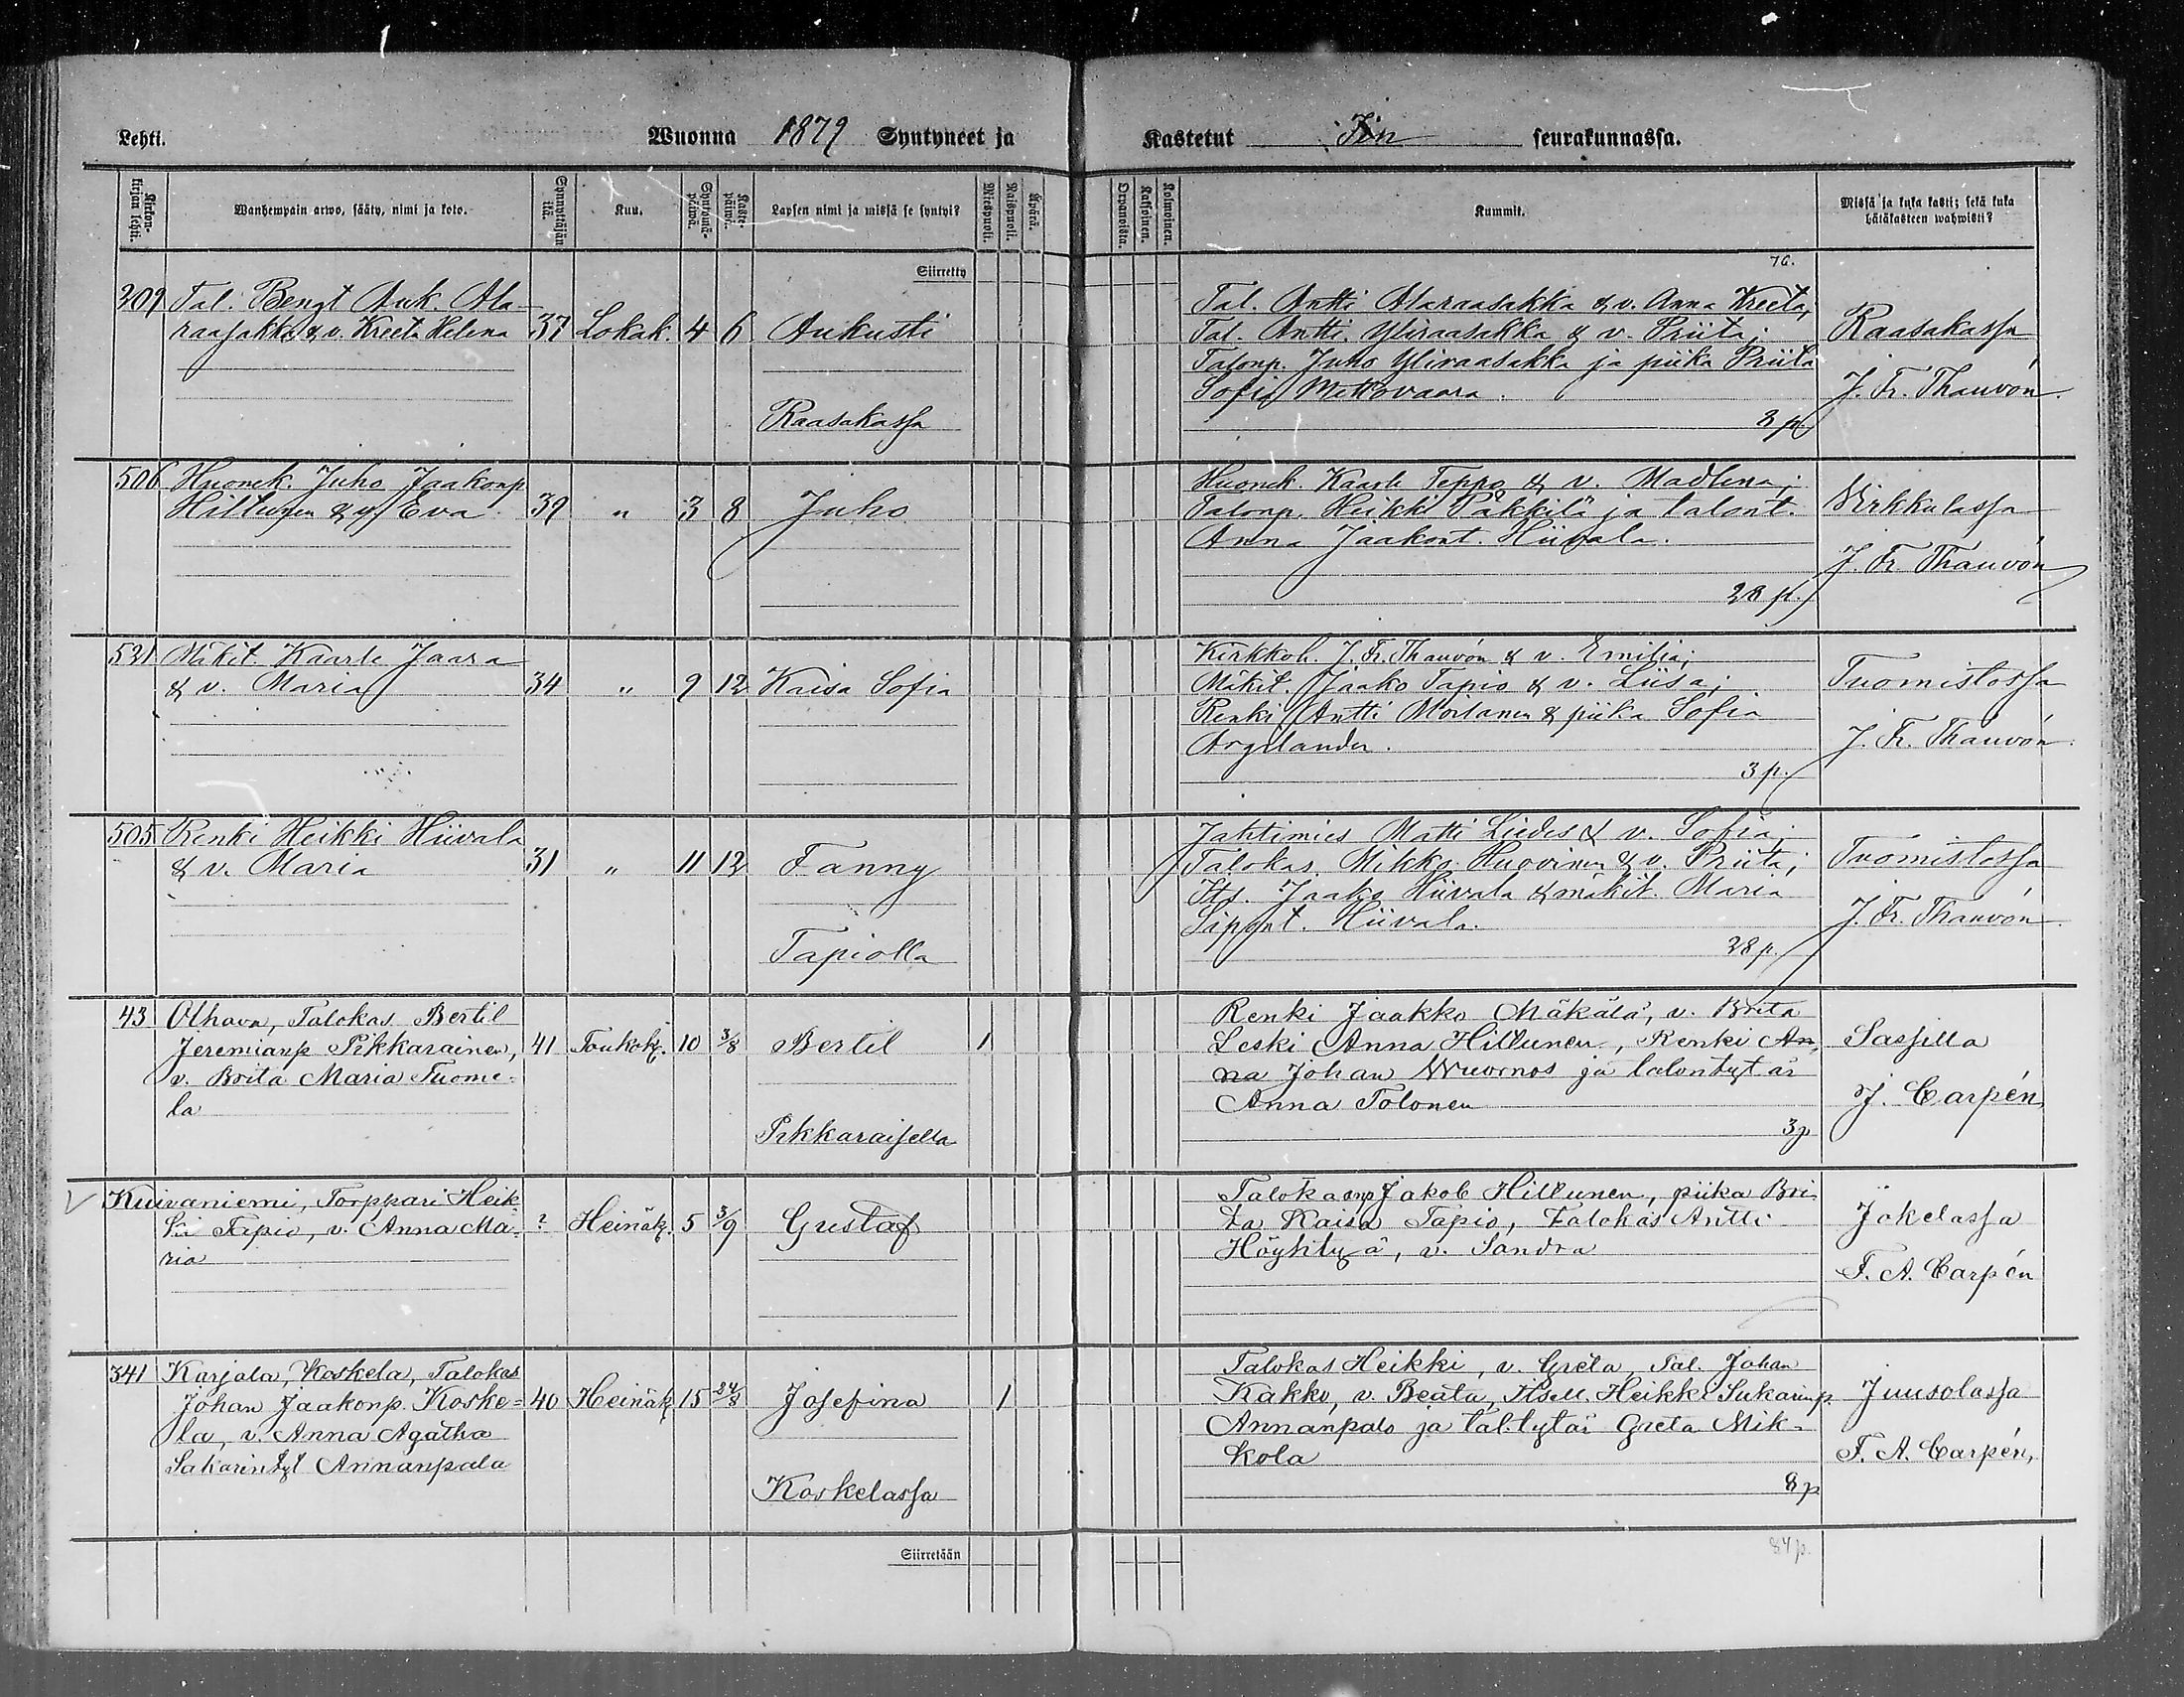 Lehti. Wuonna 1879 Syntyneet ja Kastetut Iin seurakunnassa.
Kirkonkirjan lehti. Wanhempain arwo, sääty, nimi ja koto. Synnyttäjän ikä. Kuu. Syntymäpäiwä. Kastepäiwä. Lapsen nimi ja missä se syntyi? Miespuoli. Naispuoli. Äpärä. Orpanoista. Kaksoinen. Kolmoinen. Kummit. Missä ja kuka kasti; sekä kuka hätäkasteen wahwisti?
Siirretty 76.
209 Tal. Bengt Auk. Ala-
raasakka & v. Kreeta Helena 37 Lokak. 4 6 Aukusti
Raasakassa
Tal. Antti Alaraasakka & v. Anna Kreeta,
Tal. Antti Yliraasakka & v. Priita;
Talonp. Juho Yliraasakka ja piika Priita
Sofia Metsovaara.
3 p
Raasakassa
J. Fr. Thauvón.
506 Huonek. Juho Jaakonp
Hiltunen & v. Eva 39 " 3 8 Juho
Huonek. Kaarle Teppo & v. Madlena;
Talonp. Heikki Pakkila ja talont.
Anna Jaakont. Hiivala.
28 p.
Virkkulassa
J. Fr. Thauvón
521 Mäkit. Kaarle Jaara
& v. Maria 34 " 9 12 Kaisa Sofia
Kirkkoh. J. Fr. Thauvón & v. Emilia;
Mäkit. Jaako Tapio & v. Liisa;
Renki Antti Moilanen & piika Sofia
Argelander.
3 p.
Tuomistossa
J. Fr. Thauvón.
505 Renki Heikki Hiivala
& v. Maria 31 " 11 12 Fanny
Tapiolla
Jahtimies Matti Liedes & v. Sofia;
Talokas Mikko Huovinen & v. Priita;
Its. Jaako Hiivala & mäkit. Maria
Sipont. Hiivala.
28 p.
Tuomistossa
J. Fr. Thauvón.
43 Olhava, Talokas Bertil
Jeremianp Pikkarainen, 41 Toukok. 10 3/8 Bertil 1
v. Brita Maria Tuome-
la
Pikkaraisella
Renki Jaakko Mäkälä, v. Brita
Leski Anna Hiltunen, Renki An-
na Johan Wuornos ja talontytär
Anna Tolonen
3 p
Sassilla
J. Carpén
Kuivaniemi, Torppari Heik
ki Tapio, v. Anna Ma- ? Heinäk. 5 3/9 Gustaf
ria
Talokasnp Jakob Hiltunen, piika Bri-
ta Kaisa Tapio, Talokas Antti
Höyhtyä, v. Sandra
Jakelassa
F. A. Carpén
341 Karjala, Koskela, Talokas
Johan Jaakonp. Koske= 40 Heinäk 15 24/8 Josefina 1
la, v. Anna Agatha
Sakarintyt Annanpala
Koskelassa
Talokas Heikki, v. Greta, Tal. Johan
Kakko, v. Beata, Itsell. Heikki Sakarinp.
Annanpalo ja tal.tytär Greta Mik-
kola
8 p
Juusolassa
F. A. Carpén,
Siirretään 84 p.